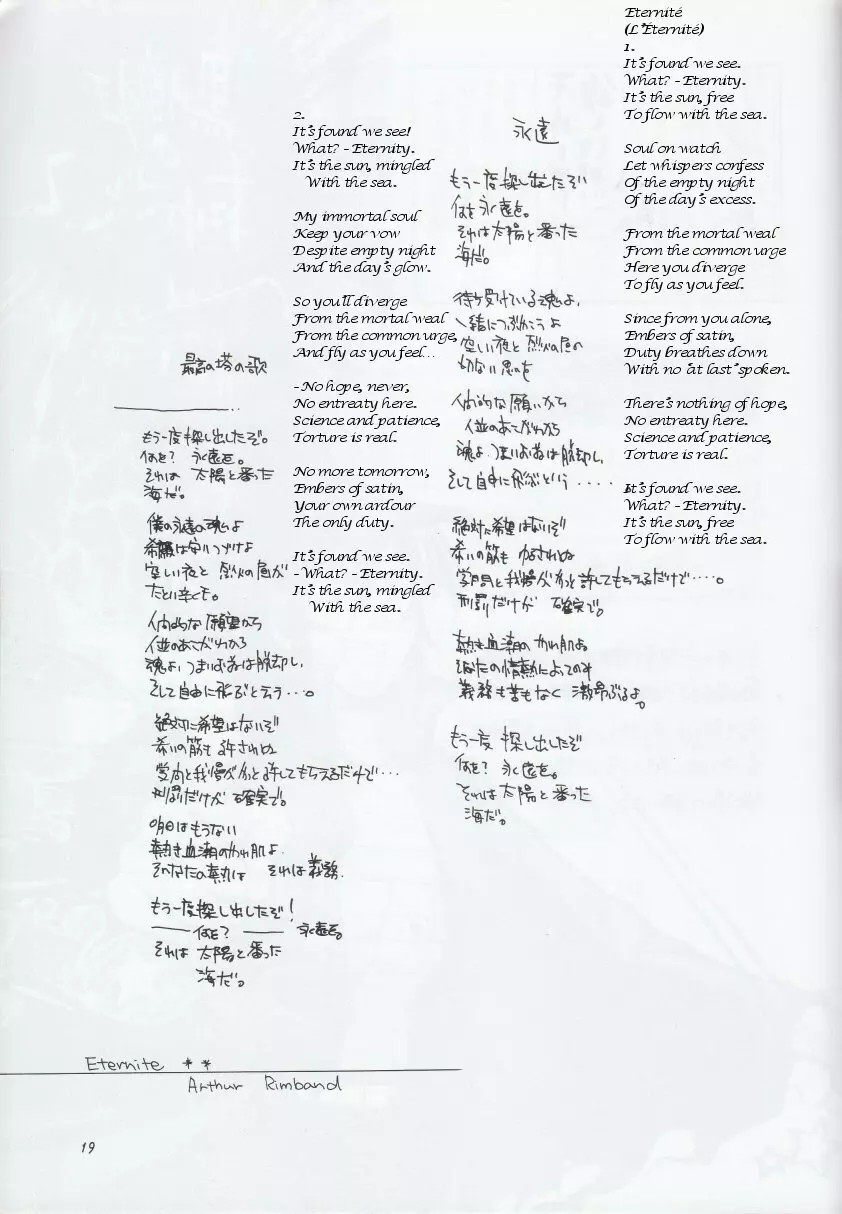 Eternité
(L'Éternité)
1.
It's found we see.
What? - Eternity.
It's the sun, free
To flow with the sea.
Soul on watch
Let whispers confess
Of the empty night
Of the day's excess.
From the mortal weal
From the common urge
Here you diverge
To fly as you feel.
Since from you alone,
Embers of satin,
Duty breathes down
With no 'at last' spoken.
There's nothing of hope,
No entreaty here.
Science and patience,
Torture is real.
It's found we see.
What? - Eternity.
It's the sun, free
To flow with the sea.
永遠
もう一度探し出したぞ
何を永遠を。
それは太陽と番った
海だ。
待ち受けている魂よ、
一緒につぶやこうよ
空しい夜と烈火の昼の
切ない思いを
人間的な願いから
人並のあこがれから
魂よ、つまりお前は脱却し、
そして自由に飛ぶという・・・・
絶対に希望はないぞ
希いの筋も
学問と我慢がやっと許してもらえるだけで・・・・。
刑罰だけが 確実で。
熱き血潮の やわ肌よ
そなたの情熱によってのみ
義務も苦もなく 激昂ぶるよ。
もう一度 探し出したぞ
何を? 永遠を。
それは太陽と番った
海だ。
2.
It's found we see!
What? - Eternity.
It's the sun, mingled
With the sea.
My immortal soul
Keep your vow
Despite empty night
And the day's glow.
So you'll diverge
From the mortal weal
From the common urge,
And fly as you feel...
- No hope, never,
No entreaty here.
Science and patience,
Torture is real.
No more tomorrow,
Embers of satin,
Your own ardour
The only duty.
It's found we see.
- What? - Eternity.
It's the sun, mingled
With the sea.
最高の塔の歌
もう一度探し出したぞ。
何を? 永遠を。
それは 太陽と番った
海だ。
僕の永遠の魂よ
希願は守りつづけよ
空しい夜と 烈火の昼が
たとい辛くも。
人間的な願望から
人並のあこがれから
魂よ、つまりお前は脱却し、
そして自由に飛ぶと云う・・・。
絶対に希望はないぞ
希いの筋も許されぬ
学問と我慢がやっと許してもらえるだけで・・・
刑罰だけが 確実で。
明日はもうない
熱き血潮のやわ肌よ
そなたの熱は それは義務。
もう一度探し出したぞ!
―― 何を? ―― 永遠を。
それは 太陽と番った
海だ。
Eternite **
Arthur Rimband
19